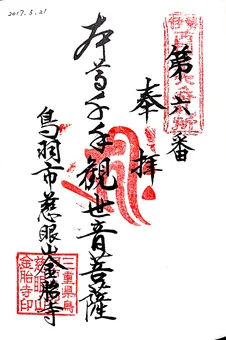 2017.5.21
第六番
奉拝
本尊千手観世音菩薩
鳥羽市慈眼山金胎寺
三重県鳥
金胎寺印